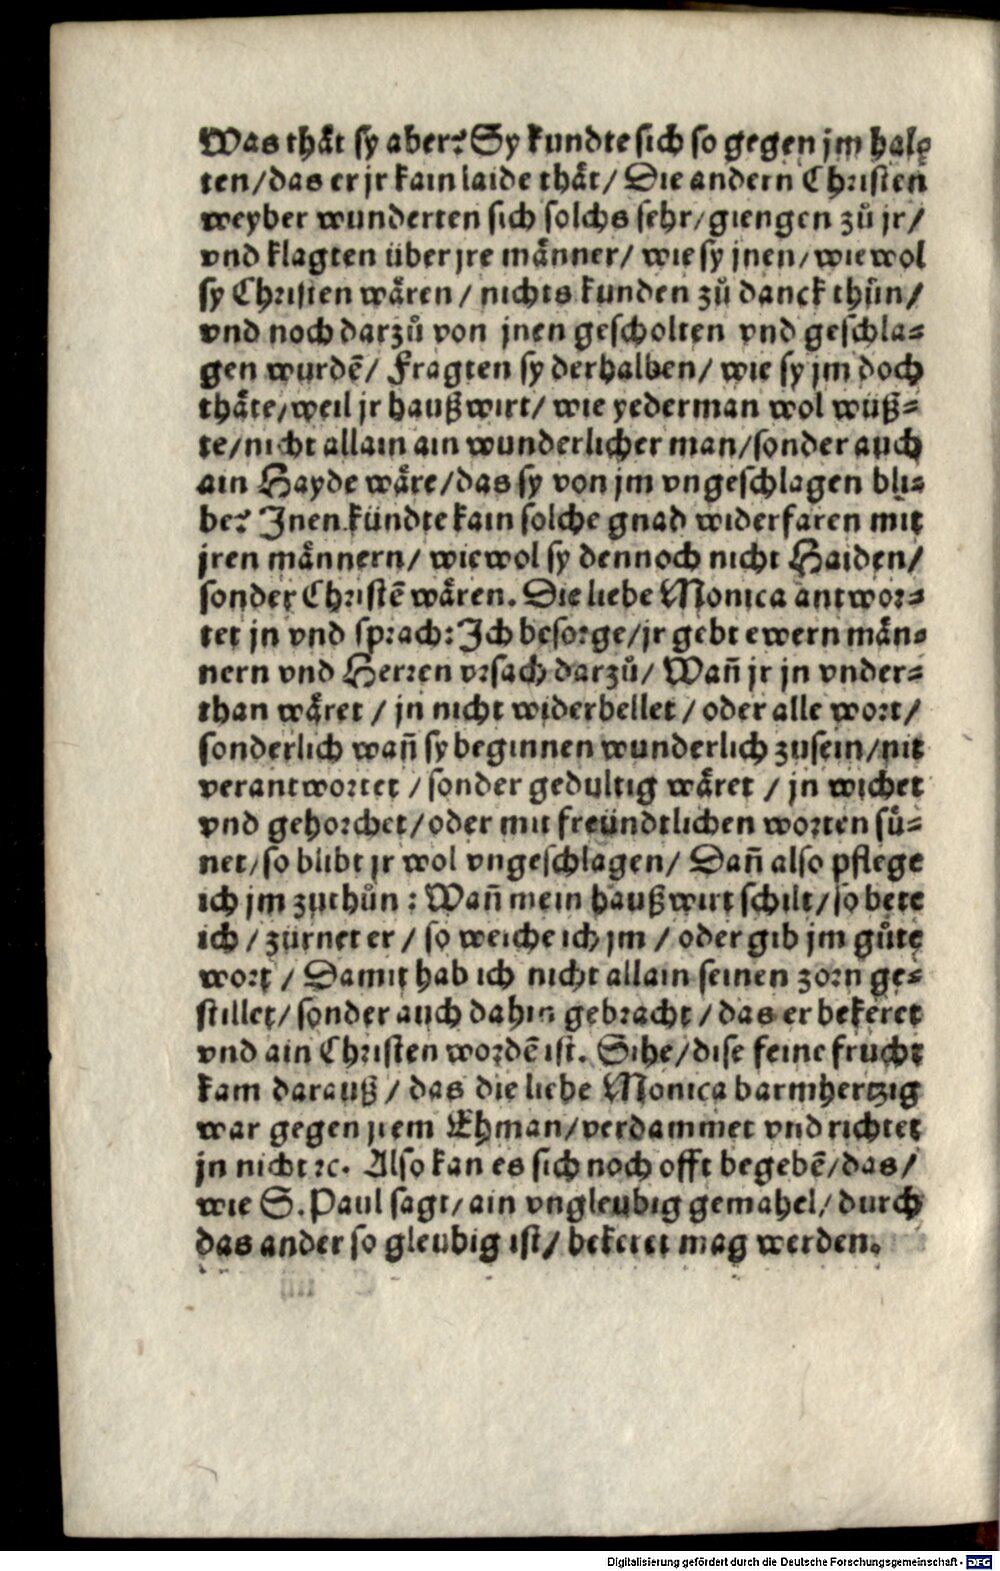 Was thät sy aber? Sy kundte sich so gegen jm hal⸗
ten/das er jr kain laide thät/ Die andern Christen
weyber wunderten sich solchs sehr/giengen zů jr/
vnd klagten über jre männer/ wie sy jnen/wiewol
sy Christen wären / nichts kunden zů danck thůn/
vnd noch darzů von jnen gescholten vnd geschla⸗
gen wurdē/ Fragten sy derhalben/ wie sy jm doch
thäte/weil jr haußwirt/ wie yederman wol wuß⸗
te/nicht allain ain wunderlicher man/sonder auch
ain Hayde wäre/das sy von jm vngeschlagen bli⸗
be? Jnen kündte kain solche gnad widerfaren mit
jren männern/ wiewol sy dennoch nicht Haiden/
sonder Christē wären. Die liebe Monica antwor⸗
tet jn vnd sprach: Jch besorge/jr gebt ewern män⸗
nern vnd Herren vrsach darzů/ Wañ jr jn vnder⸗
than wäret / jn nicht widerbellet / oder alle wort/
sonderlich wañ sy beginnen wunderlich zusein/nit
verantwortet / sonder gedultig wäret / jn wichet
vnd gehorchet/oder mit freündtlichen worten sů⸗
net/so blibt jr wol vngeschlagen/ Dañ also pflege
ich jm zuthůn : Wañ mein haußwirt schilt/so bete
ich / zürnet er / so weiche ich jm / oder gib jm gůte
wort / Damit hab ich nicht allain seinen zorn ge⸗
stillet/ sonder auch dahin gebracht / das er bekeret
vnd ain Christen wordē ist. Sihe/dise feine frucht
kam darauß / das die liebe Monica barmhertzig
war gegen jrem Ehman/verdammet vnd richtet
jn nicht ꝛc. Also kan es sich noch offt begebē/das/
wie S. Paul sagt/ ain vngleubig gemahel/ durch
das ander so gleubig ist/ bekeret mag werden.
Digitalisierung gefördert durch die Deutsche Forschungsgemeinschaft - DFG